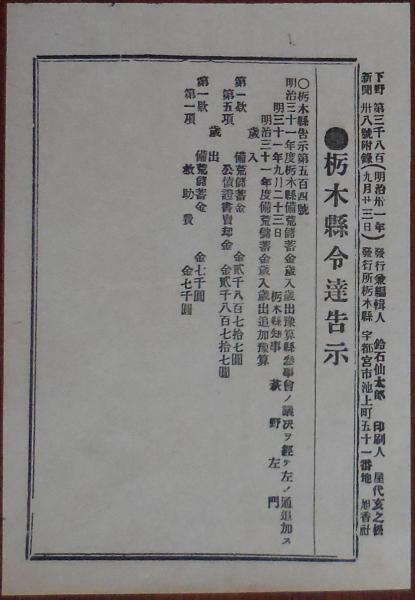 下野新聞 第三千八百卅八號附録 (明治卅一年九月廿三日) 發行兼編輯人 鈴石仙太郎 印刷人 屋代亥之松 發行所栃木縣宇都宮市池上町五十一番地 旭香社
●栃木縣令達告示
〇栃木縣告示第五百四號
明治三十一年度栃木縣備荒儲蓄金歳入歳出豫算縣參事會ノ議決ヲ經テ左ノ通追加ス
明治三十一年九月二十三日
栃木縣知事 萩野左門
明治三十一年度備荒儲蓄金歳入歳出追加豫算
歳入
第一款 備荒儲蓄金 金貳千八百七拾七圓
第五項 公債證書賣却金 金貳千八百七拾七圓
歳出
第一款 備荒儲蓄金 金七千圓
第一項 救助費 金七千圓